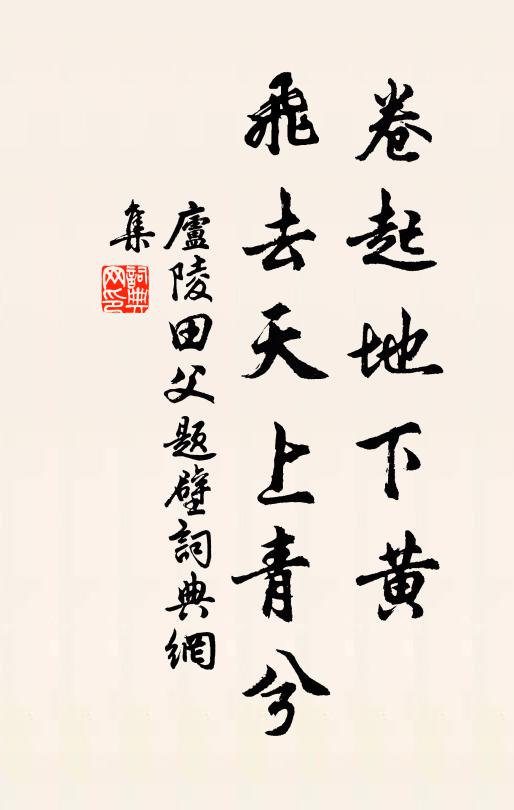 卷起地下黄
飛去天上青兮
廬陵田父題壁詞典網
集
詞典
网印